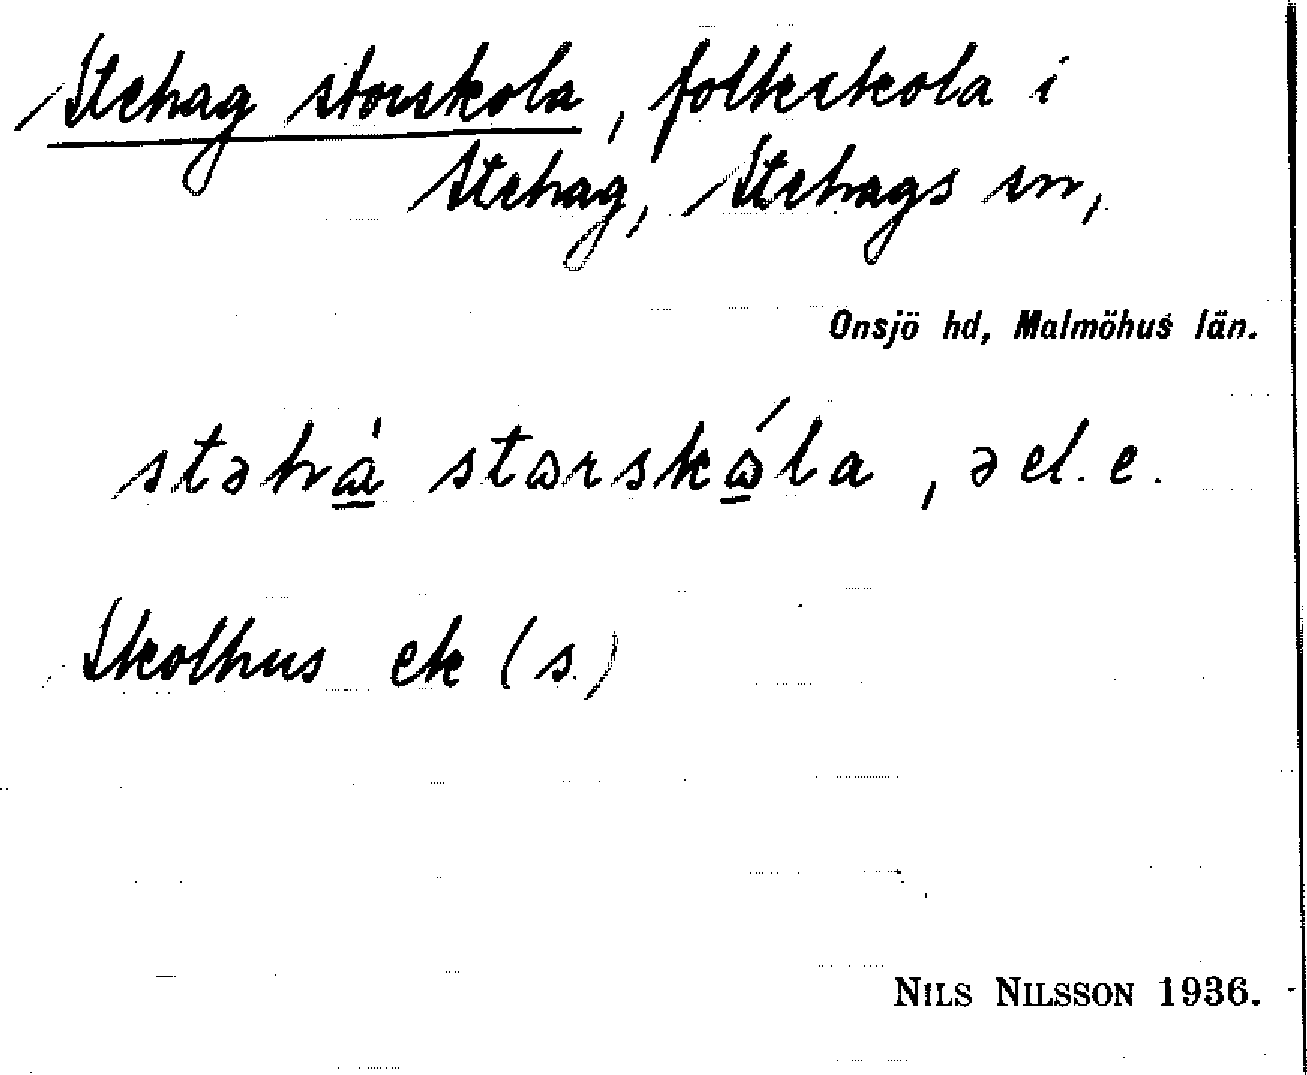 Stehag storskola, folkskola i
Stehag, Stehags sn,
Onsjö hd, Malmöhus län.
, ə el. e.
Skolhus ek (s.)
NILS NILSSON 1936.